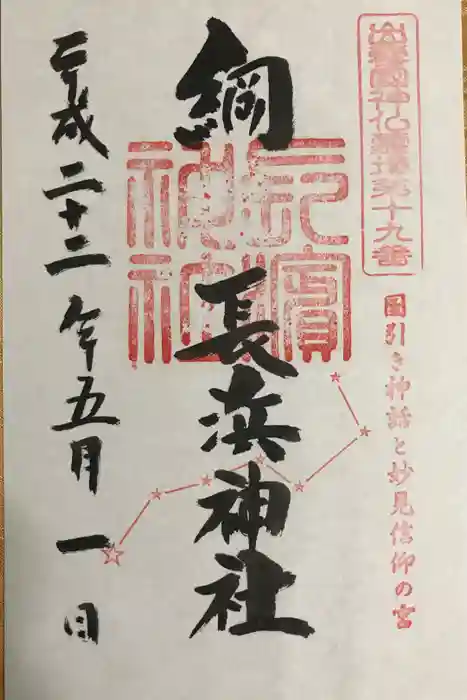 出雲國神仏霊場第十九番
國引き神話と妙見信仰の宮
綱
長濱神社
長浜神社
平成二十二年五月一日